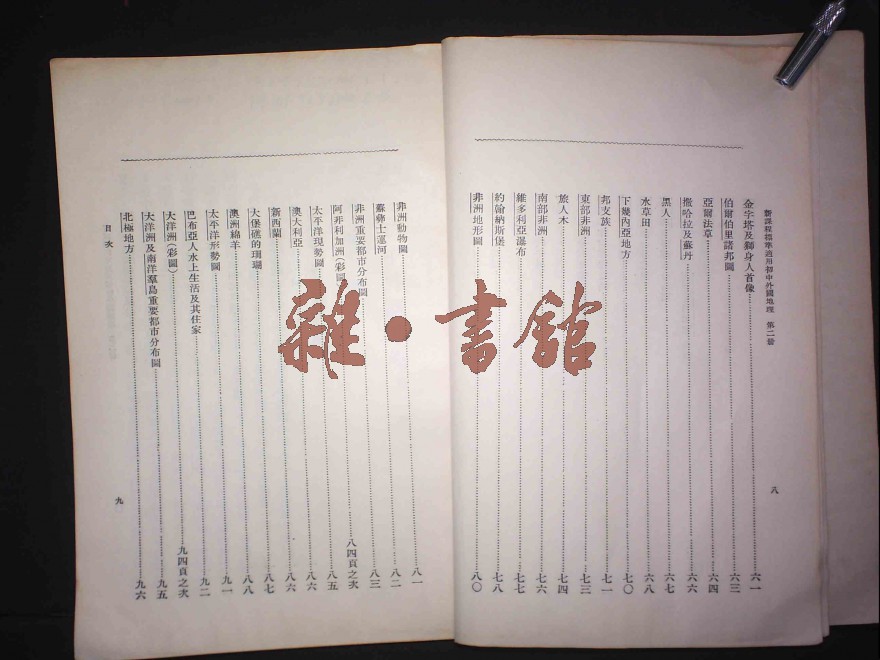 新課程標準適用初中外國地理 第二冊
金字塔及獅身人首像……六一
伯爾伯里諸邦圖……六三
亞爾法草……六四
撒哈拉及蘇丹……六六
黑人……六七
水草田……六八
下幾內亞地方……七〇
邦支族……七一
東部非洲……七三
旅人木……七四
南部非洲……七六
維多利亞瀑布……七七
約翰納斯堡……七八
非洲地形圖……八〇
八
非洲動物圖……八一
蘇彝士運河……八二
非洲重要都市分布圖……八三
阿非利加洲(彩圖)……八四頁之次
太平洋現勢圖……八五
澳大利亞……八六
新西蘭……八六
大堡礁的珊瑚……八七
澳洲綿羊……八八
太平洋形勢圖……九一
巴布亞人水上生活及其住家……九二
大洋洲(彩圖)……九四頁之次
大洋洲及南洋羣島重要都市分布圖……九五
北極地方……九六
目次
九
雜·書館